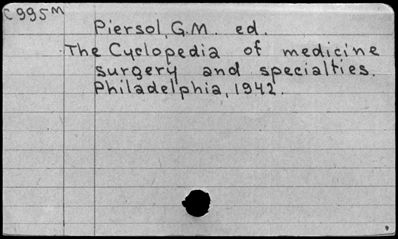 C995M
Piersol, G.M. ed.
The Cyclopedia of medicine
surgery and specialties.
Philadelphia, 1942.